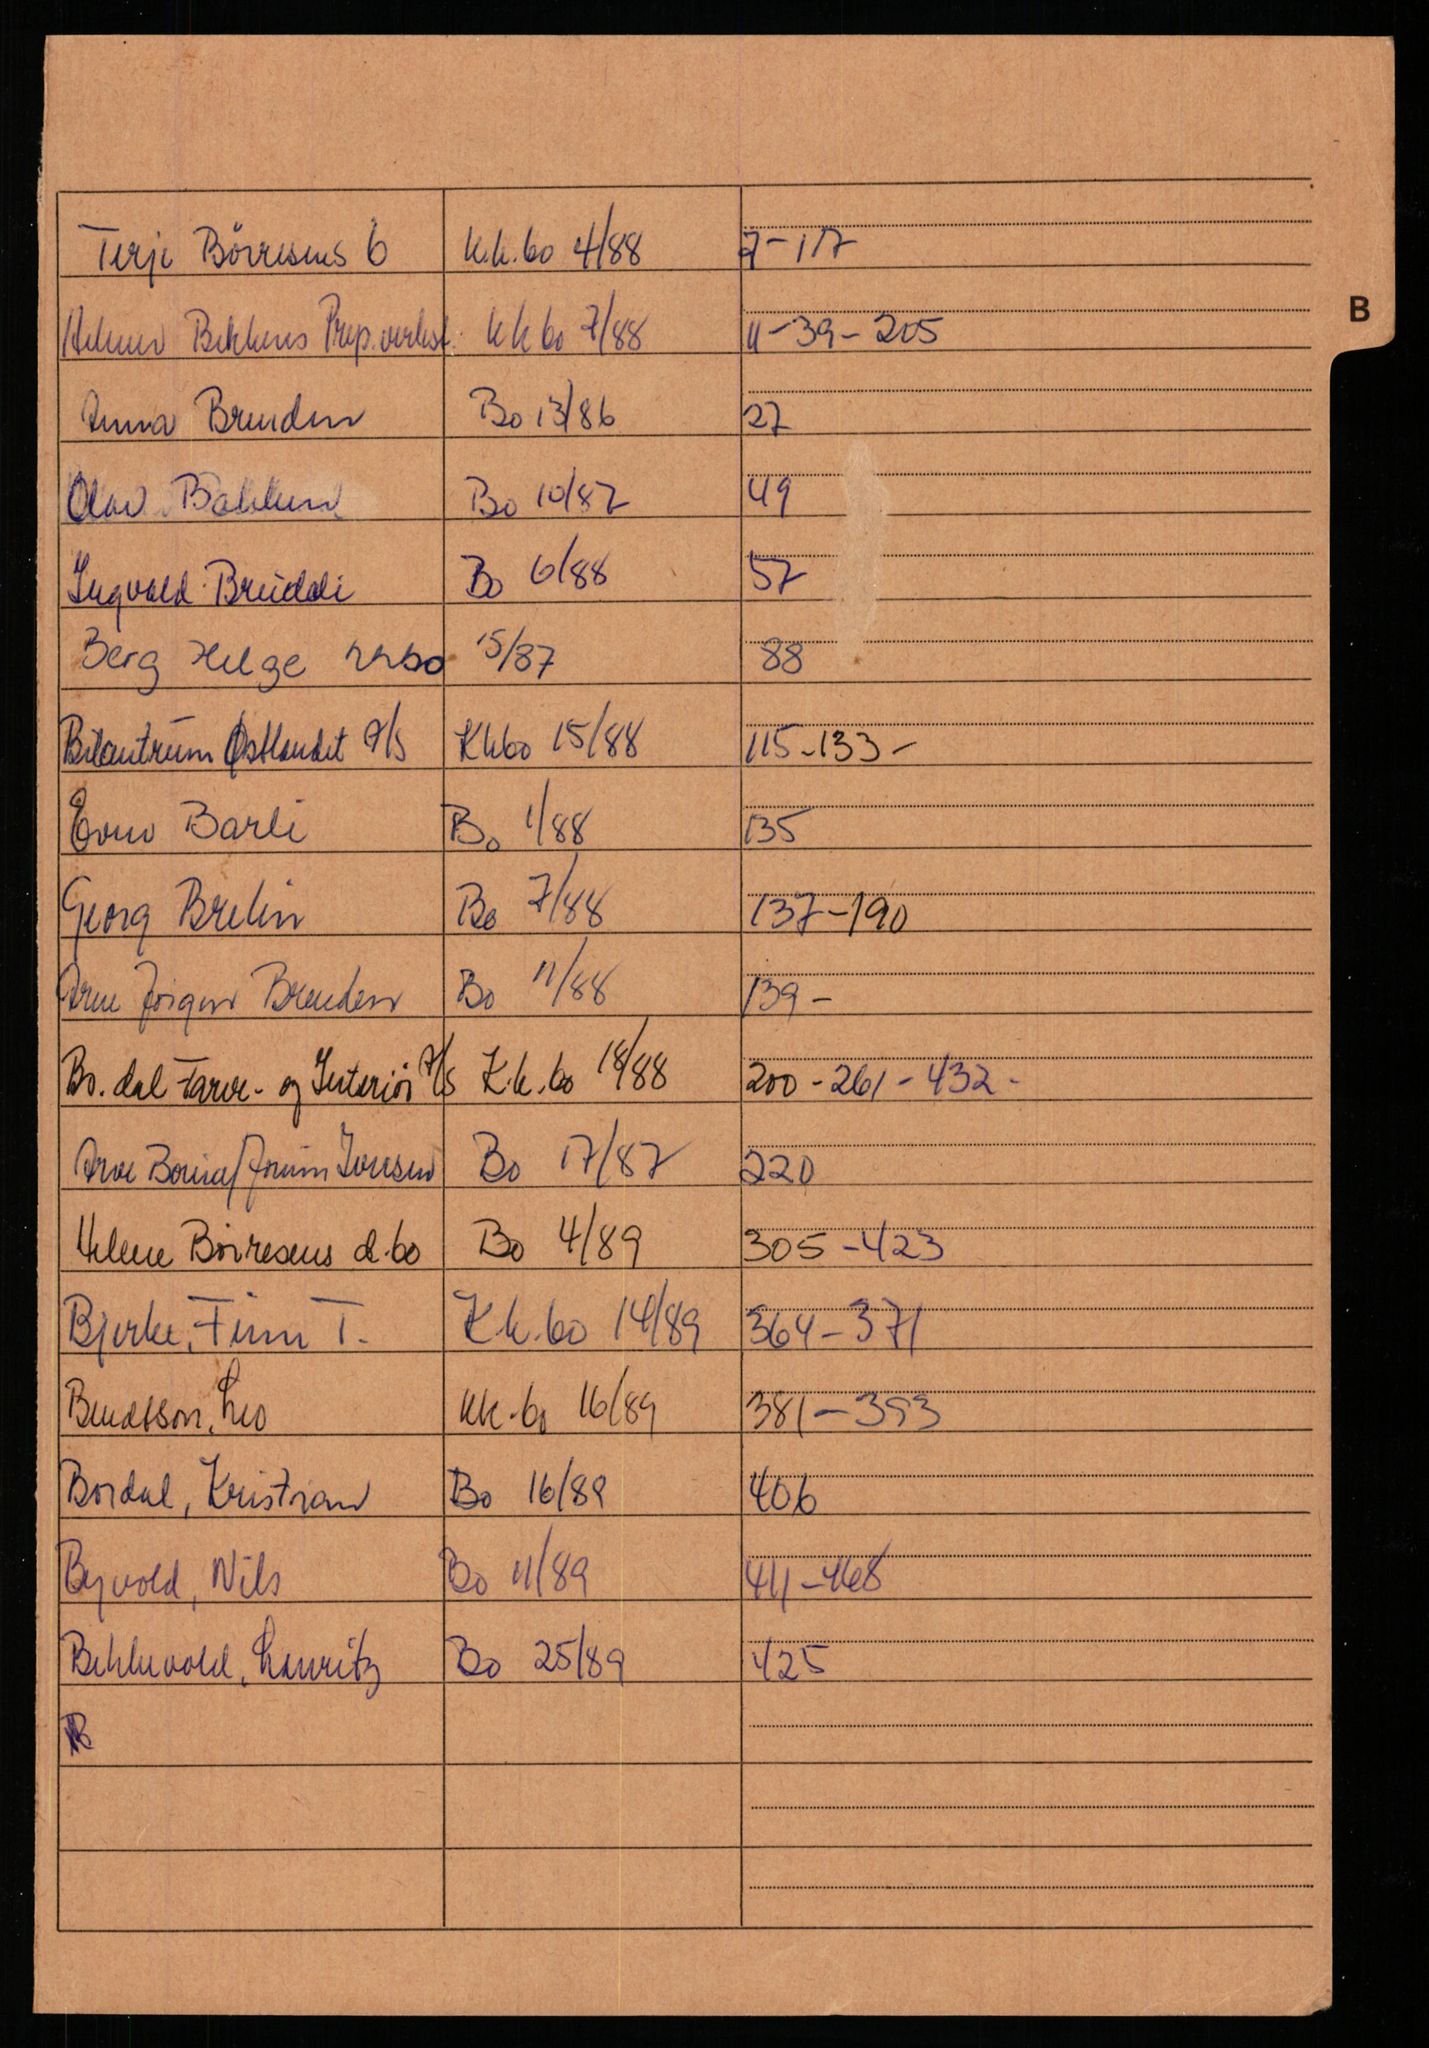 Terje Börresens b K.k.bo 4/88 7-117
B
Helmer Bekkens Rep.verkst. kk bo 7/88 11-39-205
Anna Brenden Bo 13/86 27
Olav Bakken Bo 10/87 49
Ingvald Breiddi Bo 6/88 57
Berg Helge kkbo 15/87 88
Bilsentrum Østlandet A/S Kkbo 15/88 115-133-
Barli Bo 1/88 135
Georg Brelin Bo 7/88 137-190
Arne Jörgen Brenden Bo 11/88 139-
Bo.dal Farve- og Interiör A/S K.k.bo 18/88 200-261-432-
Iversen Bo 17/87 220
Helene Börresens d.bo Bo 4/89 305-423
Bjerke, Finn T. K.k.bo 14/89 364-371
Bendtson, Leo kk.bo 16/89 381-393
Bordal, Kristian Bo 16/89 406
Byvold, Nils Bo 11/89 411-468
Bekkevold, Lauritz Bo 25/89 425
B